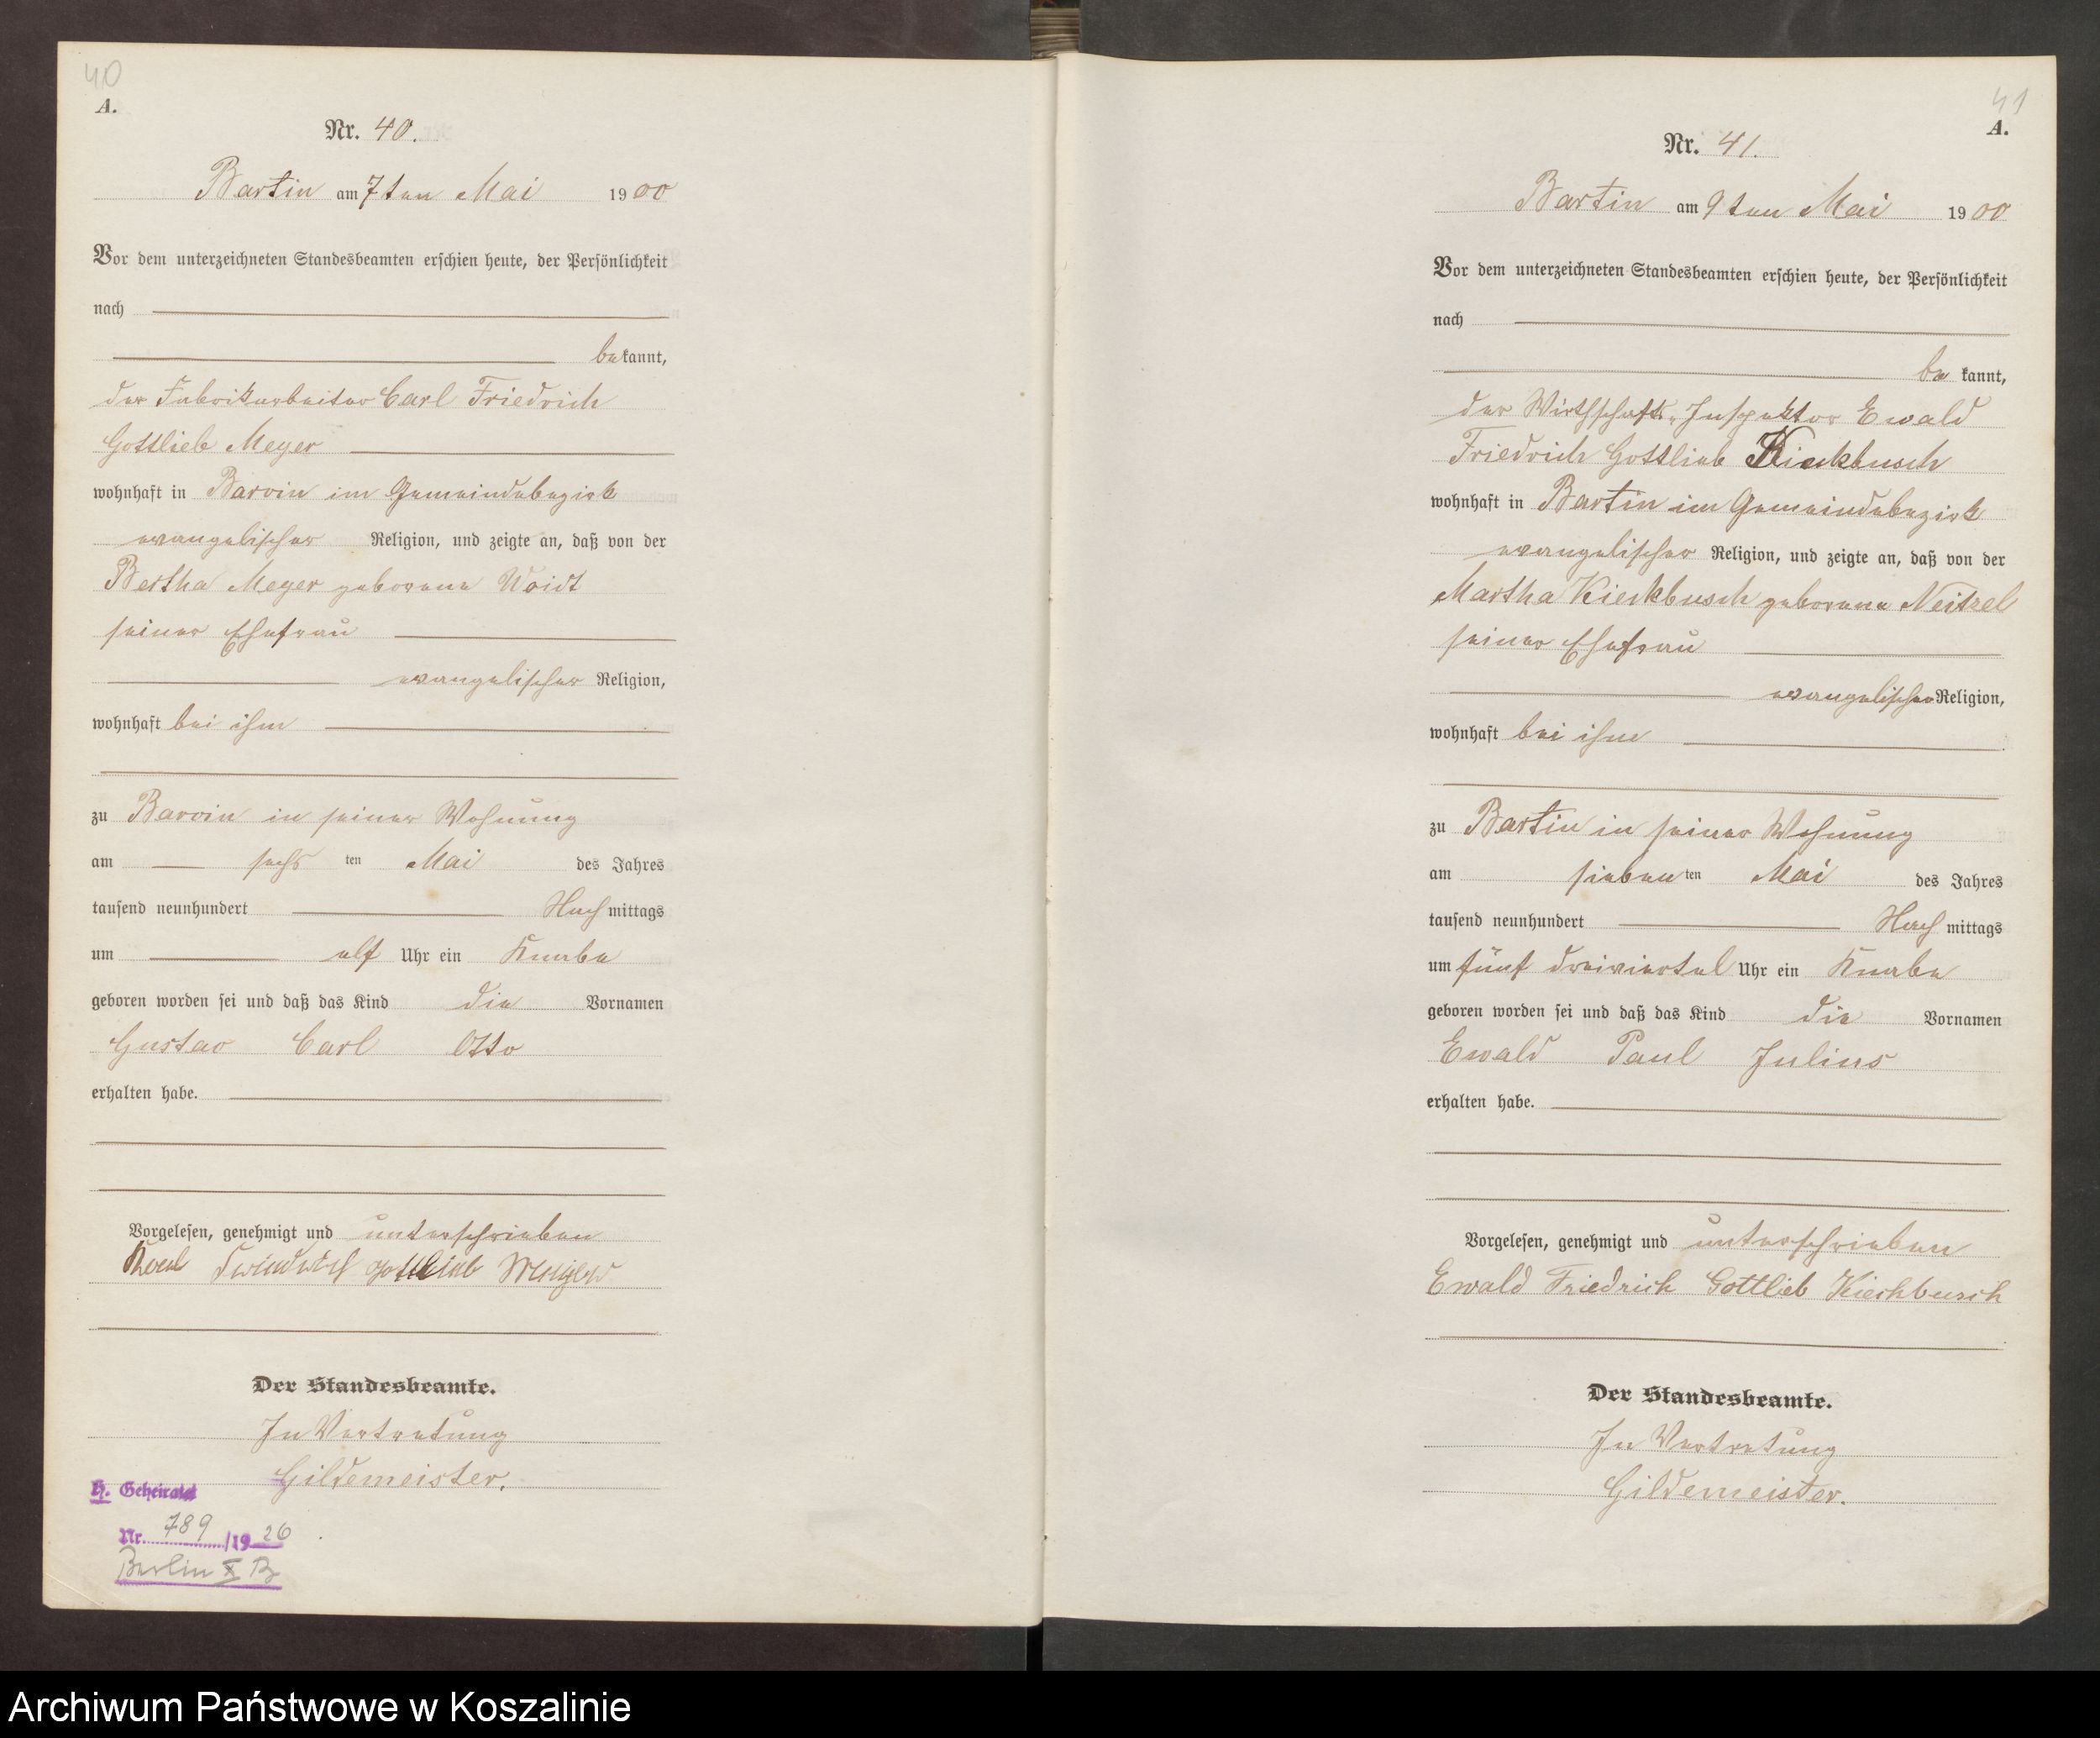 40
A.
Nr. 40.
Bartin am 7ten Mai 1900
Vor dem unterzeichneten Standesbeamten erschien heute, der Persönlichkeit
nach
bekannt,
der Fabrikarbeiter Carl Friedrich
Gottlieb Meyer
wohnhaft in Barvin im Gemeindebezirk
evangelischer Religion, und zeigte an, daß von der
Bertha Meyer geborene Woidt
seiner Ehefrau
evangelischer Religion,
wohnhaft bei ihm
zu Barvin in seiner Wohnung
am sechsten Mai des Jahres
tausend neunhundert Nachmittags
um elf Uhr ein Knabe
geboren worden sei und daß das Kind die Vornamen
Gustav Carl Otto
erhalten habe.
Vorgelesen, genehmigt und unterschrieben
Gottlieb
Der Standesbeamte.
In Vertretung
Gildemeister.
H. Geheirat
Nr. 789 /1926
Berlin X B
41
A.
Nr. 41.
Bartin am 9ten Mai 1900
Vor dem unterzeichneten Standesbeamten erschien heute, der Persönlichkeit
nach
bekannt,
der Wirthschafts-Inspektor Ewald
Friedrich Gottlieb Kieckbusch
wohnhaft in Bartin im Gemeindebezirk
evangelischer Religion, und zeigte an, daß von der
Martha Kieckbusch geborene Neitzel
seiner Ehefrau
evangelischer Religion,
wohnhaft bei ihm
zu Bartin in seiner Wohnung
am siebenten Mai des Jahres
tausend neunhundert Nachmittags
um fünf dreiviertel Uhr ein Knabe
geboren worden sei und daß das Kind die Vornamen
Ewald Paul Julius
erhalten habe.
Vorgelesen, genehmigt und unterschrieben
Ewald Friedrich Gottlieb Kieckbusch
Der Standesbeamte.
In Vertretung
Gildemeister.
Archiwum Państwowe w Koszalinie